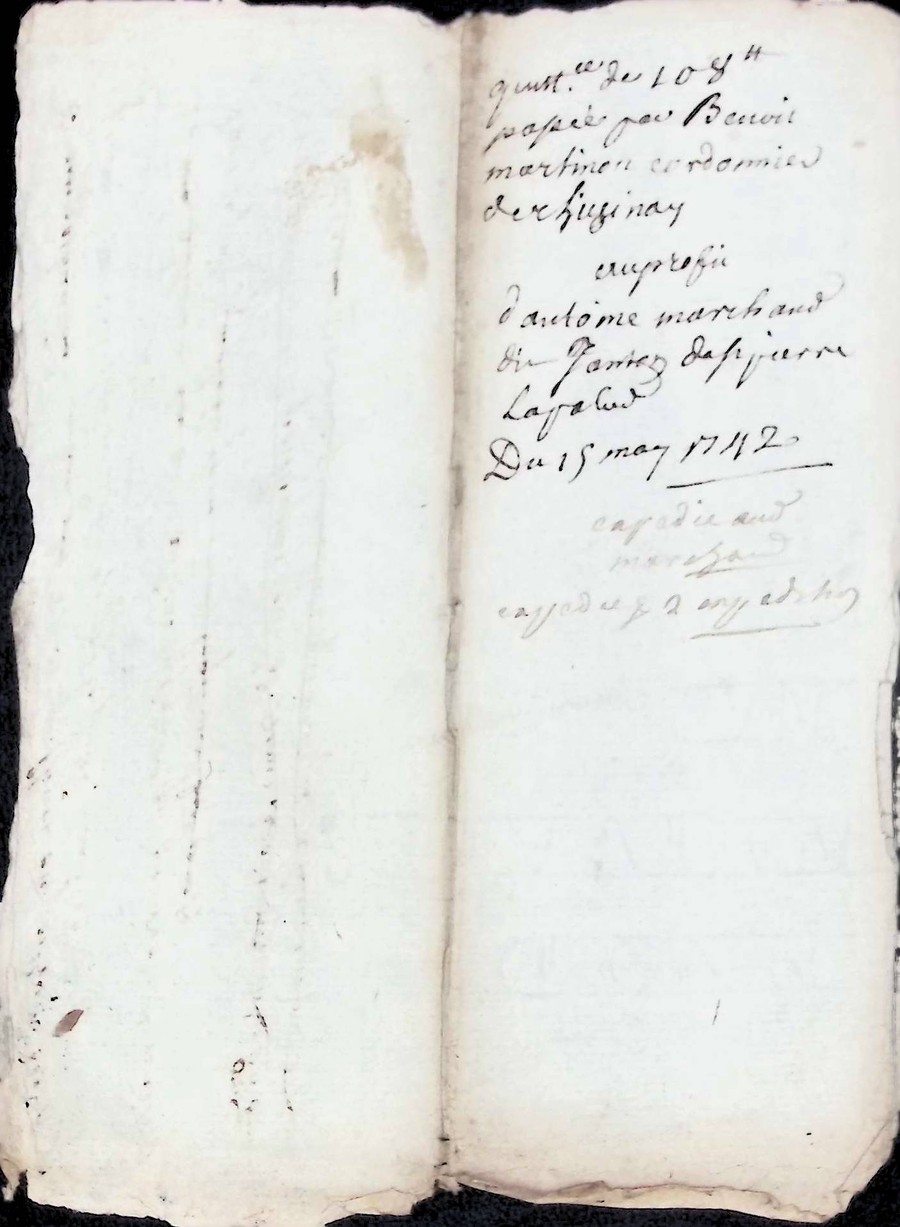 quitt.ce de 108 ₶
passée par Benoit
martinon cordonnier
de chuzinay
au proffit
d'antoine marchand
dit Jantez de st pierre
Lapalud
Du 15 may 1742
expedie aud
marchand
expedie p 2 expedition